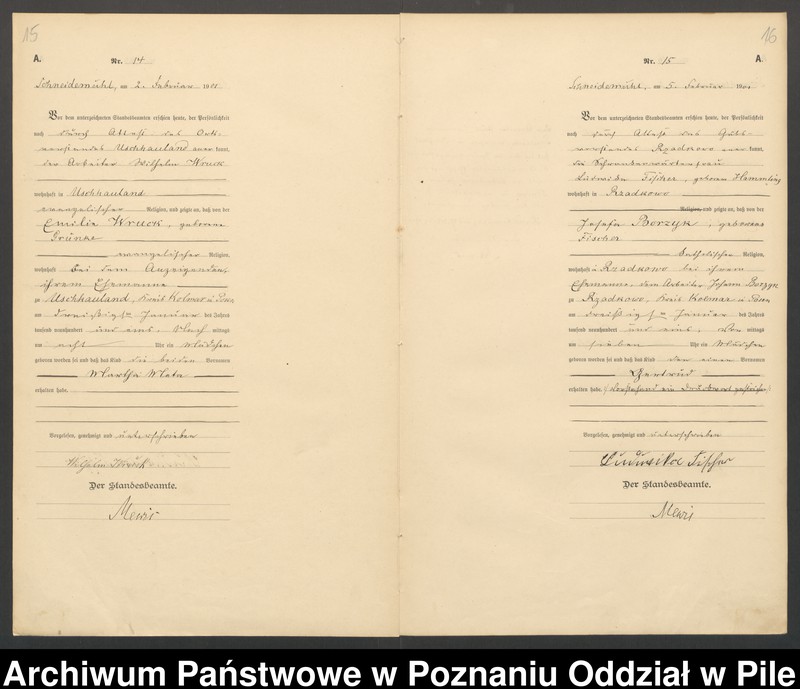 15
A.
Nr. 14
Schneidemühl, am 2. Februar 1901
Vor dem unterzeichneten Standesbeamten erschien heute, der Persönlichkeit
nach durch Attest des Orts-
vorstandes Uschhauland anerkannt,
der Arbeiter Wilhelm Wruck
wohnhaft in Uschhauland
evangelischer Religion, und zeigte an, daß von der
Emilie Wruck, geborene
Grünke
evangelischer Religion,
wohnhaft bei dem Anzeigenden,
ihrem Ehemanne
zu Uschhauland, Kreis Kolmar i. Posen
am dreißigsten Januar des Jahres
tausend neunhundert und eins, Nachmittags
um acht Uhr ein Mädchen
geboren worden sei und daß das Kind die beiden Vornamen
Martha Meta
erhalten habe.
Vorgelesen, genehmigt und unterschrieben
Wilhelm Wruck
Der Standesbeamte.
Mewis
16
A.
Nr. 15
Schneidemühl, am 5. Februar 1901
Vor dem unterzeichneten Standesbeamten erschien heute, der Persönlichkeit
nach durch Attest des Guts-
vorstandes Rzadkowo anerkannt,
die
Ludwika Fischer, geborene Hemmling
wohnhaft in Rzadkowo
Religion, und zeigte an, daß von der
Josefa Borzyk, geborene
Fischer
katholischer Religion,
wohnhaft in Rzadkowo bei ihrem
Ehemanne, dem Arbeiter Johann Borzyk
zu Rzadkowo, Kreis Kolmar i. Posen
am dreißigsten Januar des Jahres
tausend neunhundert und eins, Vormittags
um sieben Uhr ein Mädchen
geboren worden sei und daß das Kind den einen Vornamen
Gertrud
erhalten habe. (Vorstehend ein Druckwort gestrichen)
Vorgelesen, genehmigt und unterschrieben
Ludwika Fischer
Der Standesbeamte.
Mewis
Archiwum Państwowe w Poznaniu Oddział w Pile